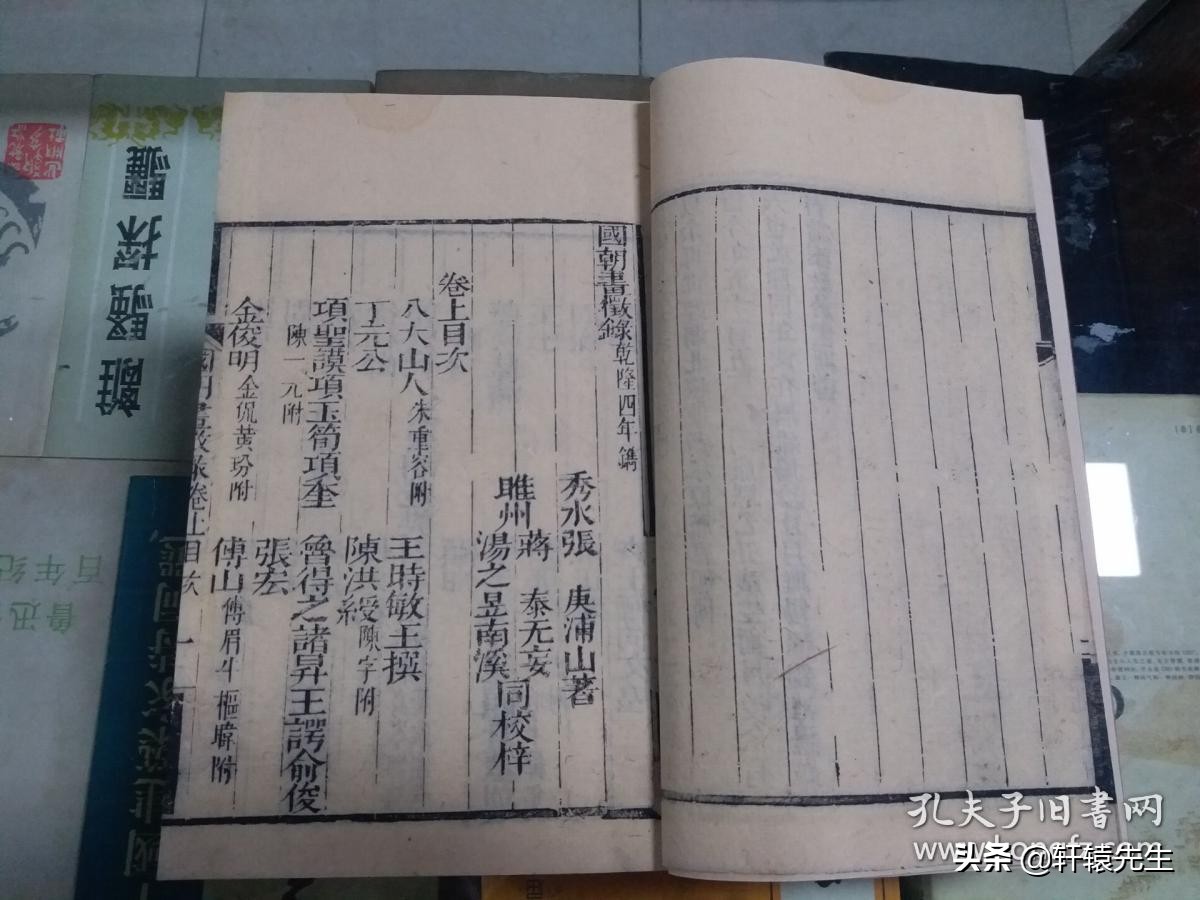 國朝畫徵錄 乾隆四年鐫
秀水張 庚浦山著
睢州 蔣 泰无妄 湯之昱南溪 同校梓
卷上目次
八大山人 朱重容附 王時敏 王撰
丁元公 陳洪綬 陳字附
項聖謨 項玉筍 項奎 魯得之 諸昇 王諤 俞俊
陳一元附 張宏
金俊明 金侃黃玢附 傅山 傅眉
國朝畫徵錄 卷上目次 一
離騷探驪
鲁迅
百年纪
孔夫子旧书网
头条 @轩辕先生